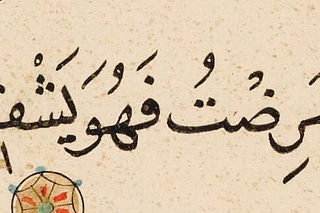 مَرِضْتُ فَهُوَ يَشْفِ